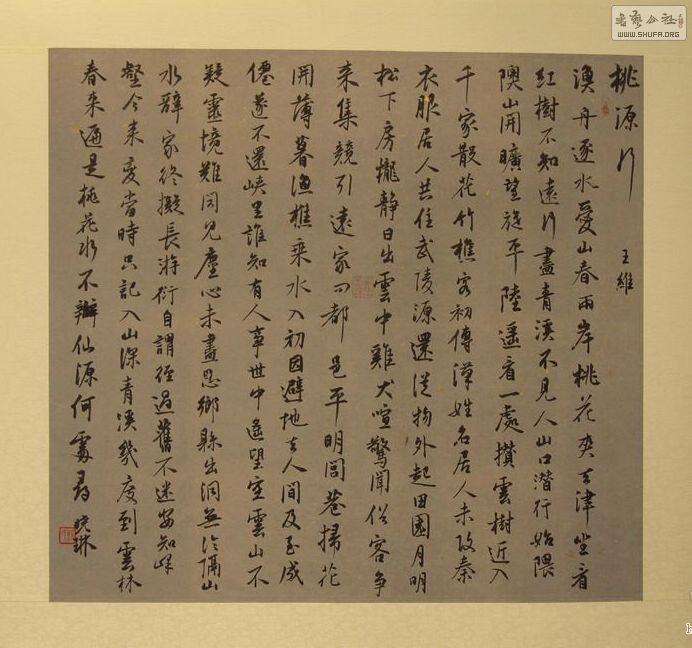 桃源行 王維
漁舟逐水愛山春兩岸桃花夾去津坐看
紅樹不知遠行盡青溪不見人山口潛行始隈
隩山開曠望旋平陸遙看一處攢雲樹近入
千家散花竹樵客初傳漢姓名居人未改秦
衣服居人共住武陵源還從物外起田園月明
松下房櫳靜日出雲中雞犬喧驚聞俗客爭
來集競引還家問都邑平明閭巷掃花
開薄暮漁樵乘水入初因避地去人間及至成
僊遂不還峽里誰知有人事世中遙望空雲山不
疑靈境難聞見塵心未盡思鄉縣出洞無論隔山
水辭家終擬長游衍自謂經過舊不迷安知峰
壑今來變當時只記入山深青溪幾度到雲林
春來遍是桃花水不辨仙源何處尋
書藝公社
WWW.SHUFA.ORG